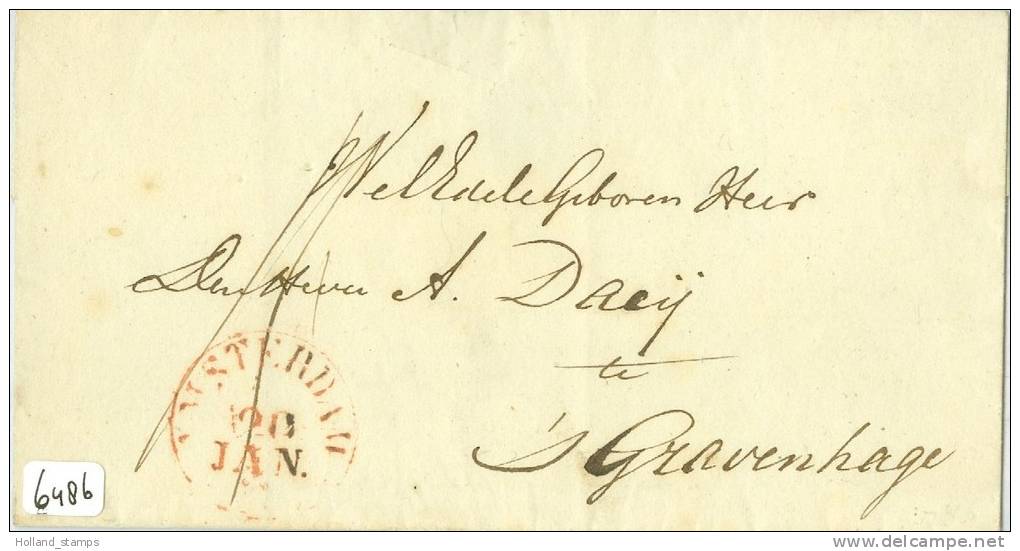 WelEdeleGeboren Heer
Den Heer A. Daeij
te
's Gravenhage
AMSTERDAM
20
JAN.
6486
Holland_stamps
delcampe.net